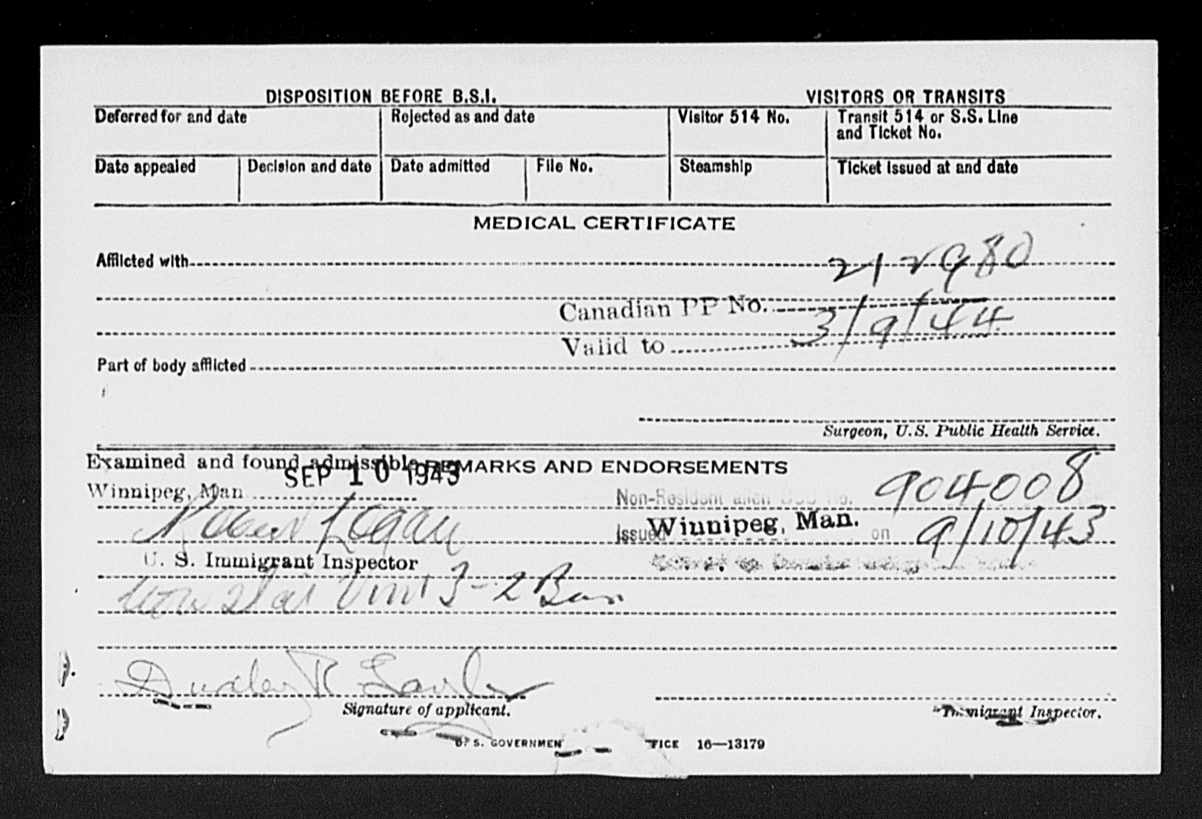 DISPOSITION BEFORE B.S.I. VISITORS OR TRANSITS
Deferred for and date Rejected as and date Visitor 514 No. Transit 514 or S.S. Line and Ticket No.
Date appealed Decision and date Date admitted File No. Steamship Ticket issued at and date
MEDICAL CERTIFICATE
Afflicted with 212980
Canadian PP No.
Valid to 3/9/44
Part of body afflicted
Surgeon, U.S. Public Health Service.
Examined and found admissible REMARKS AND ENDORSEMENTS
SEP 10 1943
Winnipeg, Man
Non-Resident alien No. 904008
Robert Logan Issued Winnipeg, Man. on 9/10/43
U. S. Immigrant Inspector
Vint 3-2
Signature of applicant. Immigrant Inspector.
U. S. GOVERNMEN FICE 16—13179